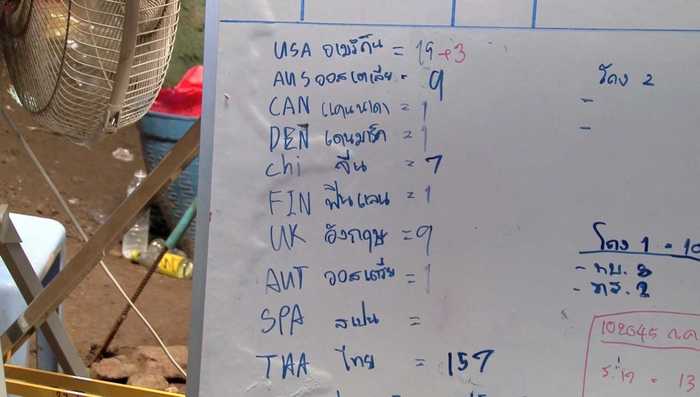 USA อเมริกัน = 19+3
AUS ออสเตเลีย = 9
CAN แคนนาดา = 1
DEN เดนมาร์ค = 1
Chi จีน = 7
FIN ฟินแลน = 1
UK อังกฤษ = 9
AUT ออสเตรีย = 1
SPA สเปน =
ไทย = 157
โดง 2
-
-
โดง 1 = 10
- ทบ. 8
- ทร. 2
102045 ก.ค
= 13